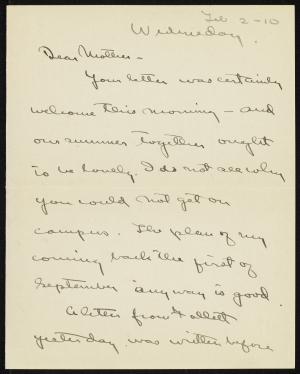 Feb 2-10
Wednesday.
Dear Mother -
Your letter was certainly
welcome this morning - and
our summer together ought
to be lovely. I do not see why
you could not get on
campus. The plan of my
coming back the first of
September anyway is good.
A letter from Follett
yesterday was written before